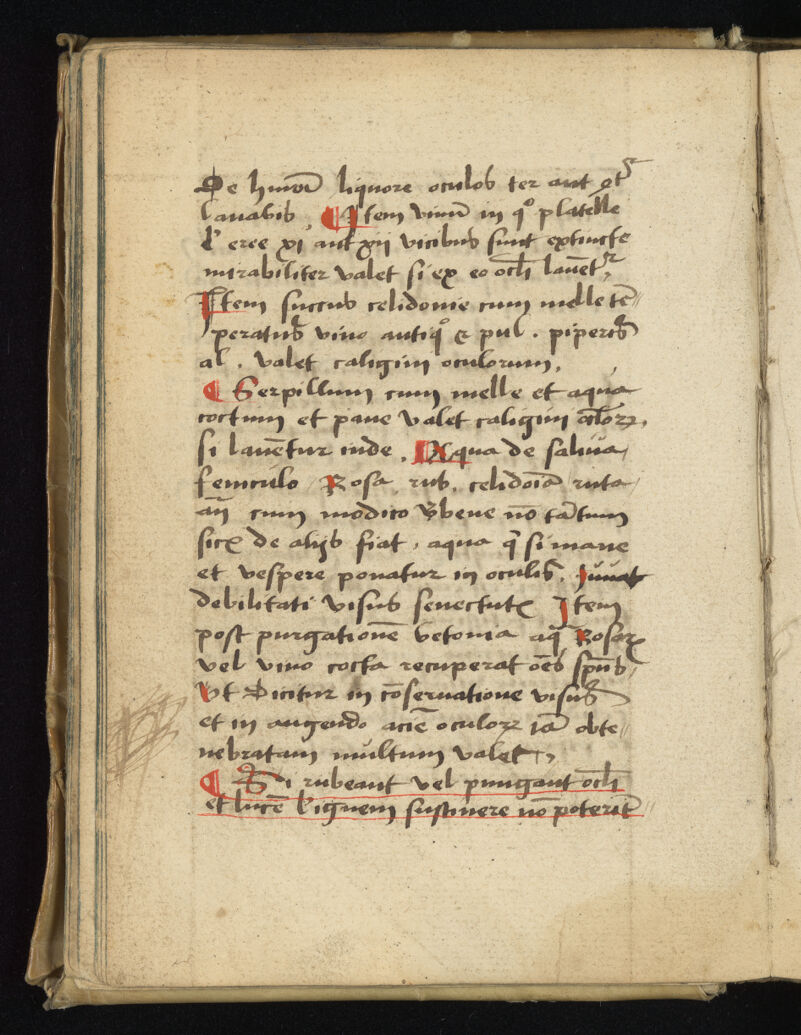 De hmōi liquore oculos ter aut qtr
lauabis, ¶ Item vinū in qo platelle
eree xi aut xij vicibus sunt extincte
mirabiliter valet si ex eo ocli lauētr
Item succus celidonie cum melle tē-
peratus vino antiqo & pul. piperis
al. valet caligini oculorum,
¶ Serpillum cum melle et aqua
coctum et pane valet caligini oclorꝝ,
si lauētur inde. Aqua de saluia,
feniculo Rosa rub, celidōia ruta
añ cum modico Vbene nō tātum
sicꝫ de alijs fiat, aqua q̄ si mane
et vespere ponatur in oculis, Iuuat
debilitati visus senectutꝭ Item
post purgationē betonia aq̄ Rosaꝝ
vel vino cocta recuperat oēs spūs,
Vt dicitur in cōseruatione visus
et in augendo aciē oculoꝝ iā obte-
nebratam multum valet,
¶ Si rubeant vel pungant ocli
et lucē ignem sustinere nō poterit